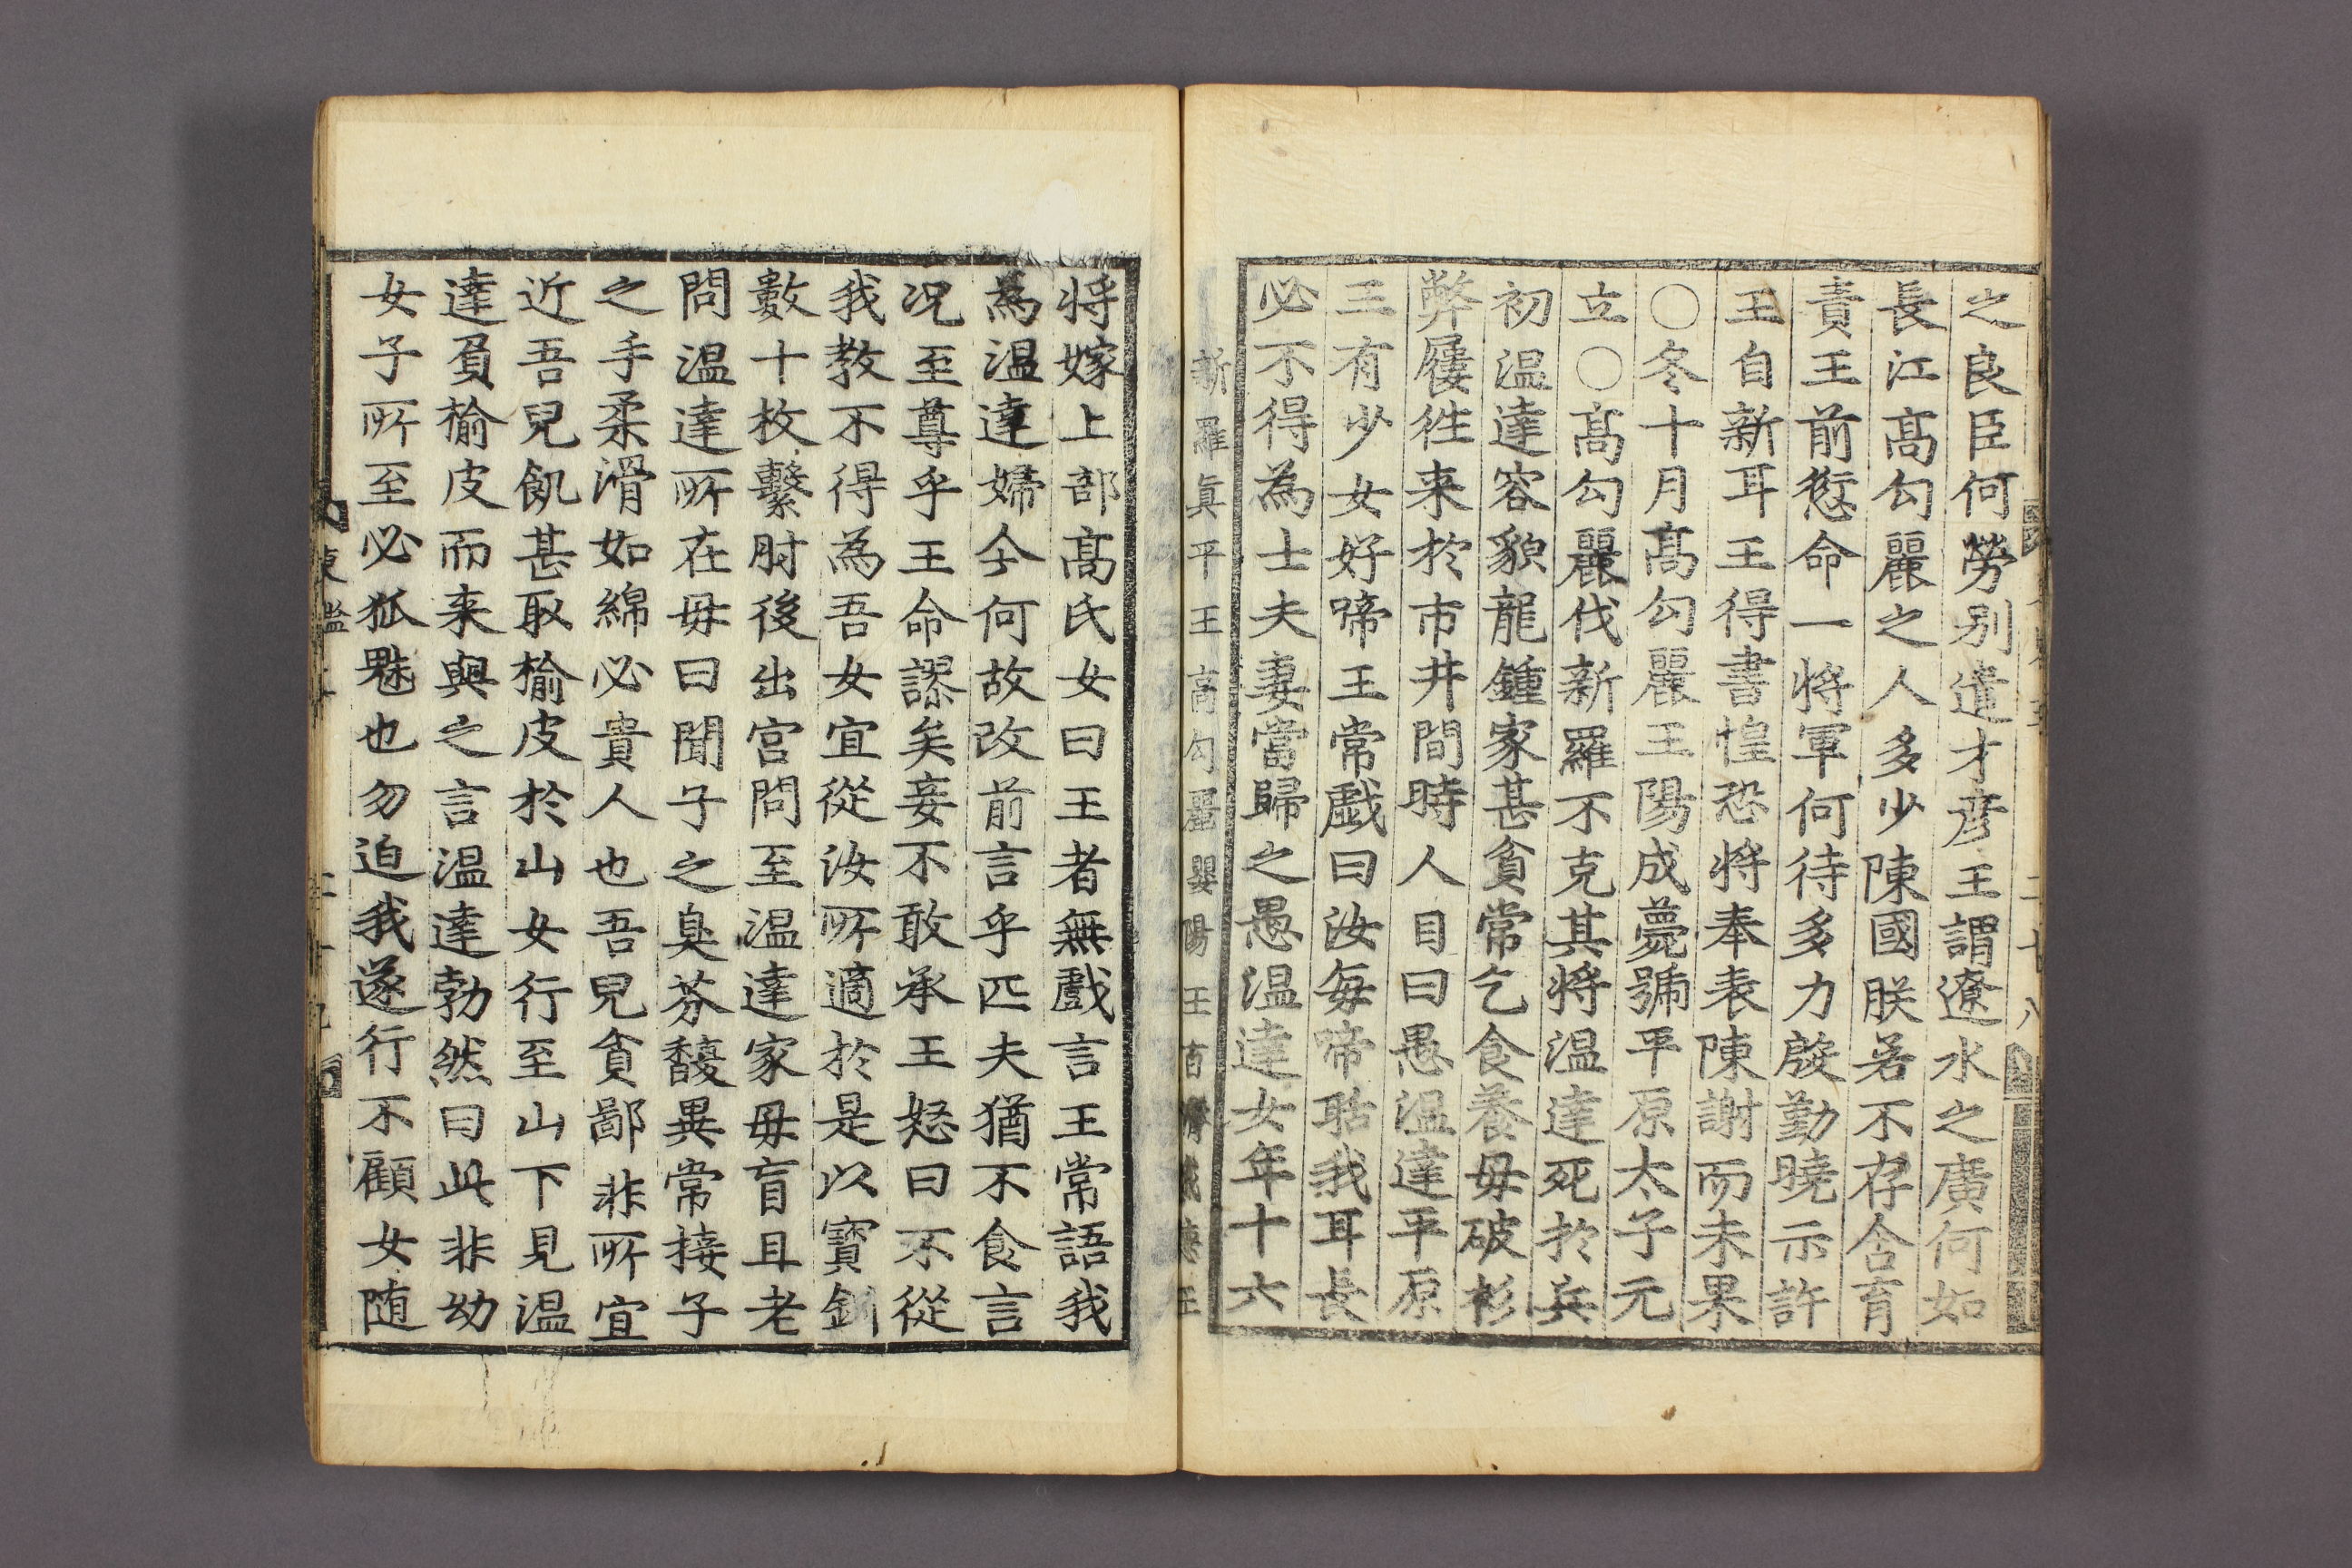 之良臣何勞別遣才彥王謂遼水之廣何如
長江髙勾麗之人多少陳國朕若不存含育
責王前愆命一將軍何待多力慇勤曉示許
王自新耳王得書惶恐將奉表陳謝而未果
〇冬十月髙勾麗王陽成薨號平原太子元
立〇髙勾麗伐新羅不克其將温達死於兵
初温達容貌龍鍾家甚貧常乞食養母破衫
弊屨徃来於市井間時人目曰愚温達平原
王有少女好啼王常戱曰汝每啼聒我耳長
必不得為士夫妻當歸之愚温達女年十六
新羅眞平王 髙勾麗嬰陽王 百濟威德王
將嫁上部髙氏女曰王者無戱言王常語我
為温達婦今何故改前言乎匹夫猶不食言
况至尊乎王命謬矣妾不敢承王怒曰不從
我教不得為吾女宜從汝所適於是以寳釧
數十枚繫肘後出宫問至温達家母盲且老
問温達所在母曰聞子之臭芬馥異常接子
之手柔滑如綿必貴人也吾兒貧鄙非所宜
近吾兒飢甚取楡皮於山女行至山下見温
達負楡皮而来與之言温達勃然曰此非幼
女子所至必狐魅也勿迫我遂行不顧女随